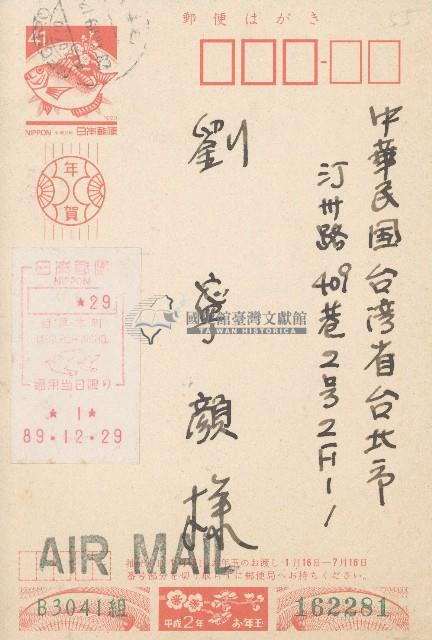 郵便はがき
41
NIPPON 日本郵便
年賀
日本郵便
NIPPON
★29
適用当日限り
★ 1 ★
89.12.29
中華民国台湾省台北市
汀州路409巷2号2F-1
劉寧顔様
國史館臺灣文獻館
TAIWAN HISTORICA
AIR MAIL
年玉のお渡し・1月16日―7月16日
番号部分を切り取らずに郵便局へお持ちください。
B3041組
平成2年 お年玉
162281